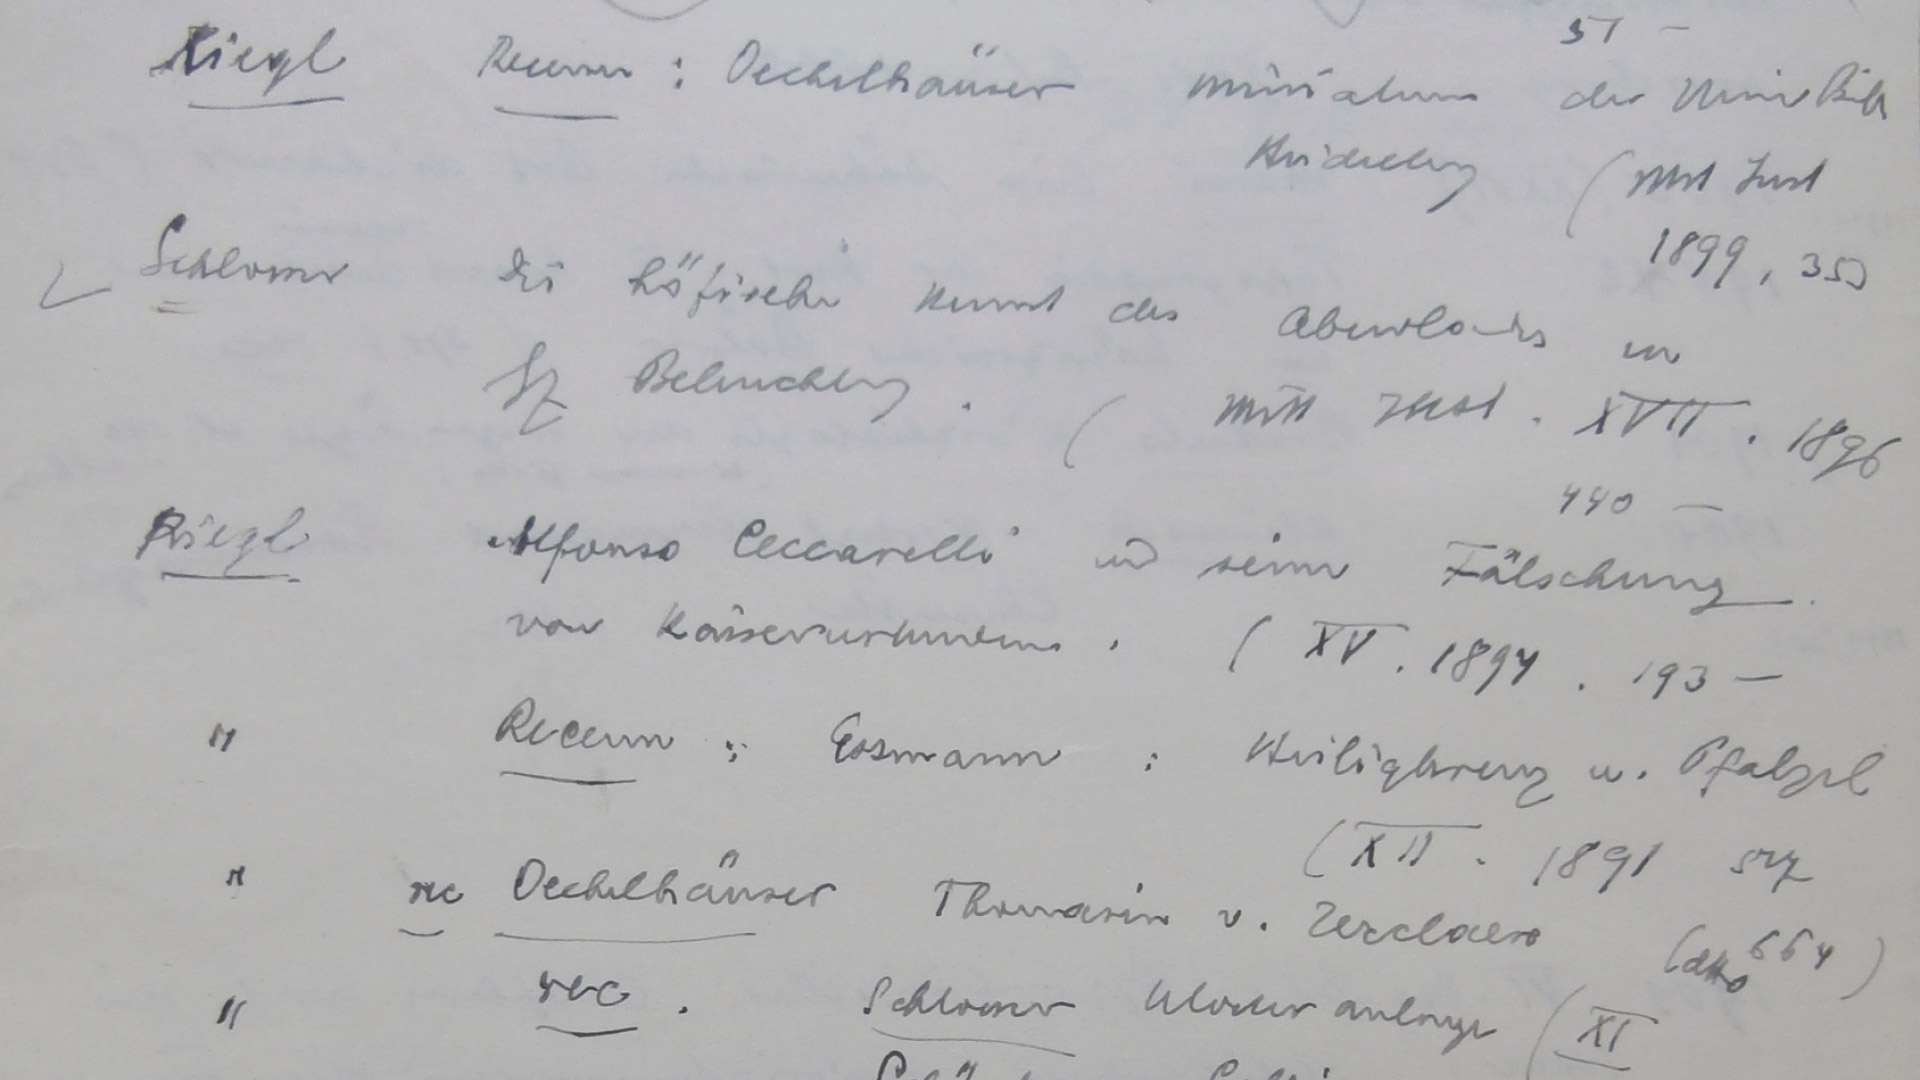 51 —
Riegl Recens : Oechelhäuser Miniaturen der Univ Bibl
Heidelberg (Mitt Inst
1899, 35
Schlosser Die höfische Kunst des Abendlandes in
bz Beleuchtung. ( Mitt Inst. XVII. 1896
440 —
Riegl Alfonso Ceccarelli und seine Fälschung
von Kaiserurkunden. ( XV. 1894. 193 —
" Recens : Essmann : Heiligkreuz u. Pfalzel
(XII. 1891
" rec Oechelhäuser Thomasin v. Zerclaere (dtto 664)
" rec. Schlosser Klosteranlage (XI